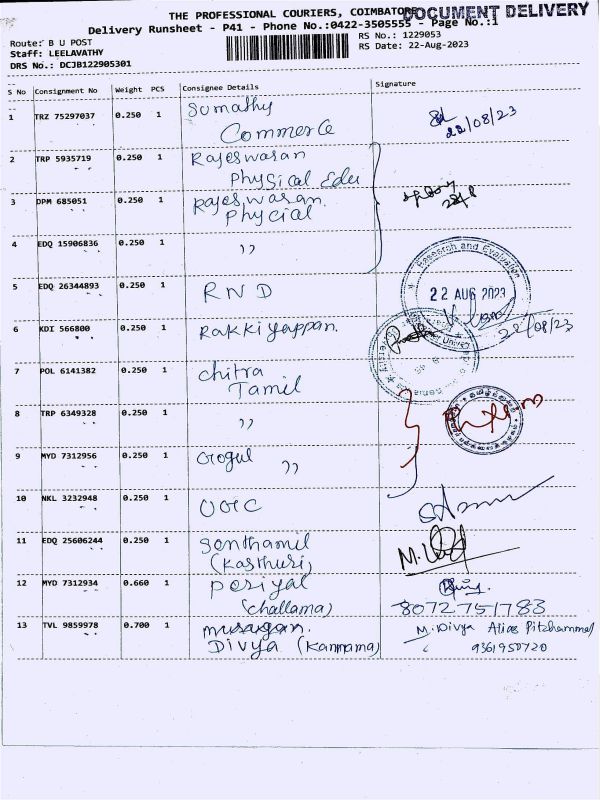 THE PROFESSIONAL COURIERS, COIMBATORE
DOCUMENT DELIVERY
Delivery Runsheet - P41 - Phone No.:0422-3505555 - Page No.:1
Route: B U POST
RS No.: 1229053
Staff: LEELAVATHY
RS Date: 22-Aug-2023
DRS No.: DCJB122905301
S No Consignment No Weight PCS Consignee Details Signature
1 TRZ 75297037 0.250 1 Sumathy
Commerce
22/08/23
2 TRP 5935719 0.250 1 Rajeswaran
Physical Edu
3 DPM 685051 0.250 1 Rajeswaran.
Phycial
4 EDQ 15906836 0.250 1 ,,
5 EDQ 26344893 0.250 1 RND
Research and Evaluation
22 AUG 2023
22/08/23
6 KDI 566800 0.250 1 Rakkiyappan.
7 POL 6141382 0.250 1 Chitra
Tamil
8 TRP 6349328 0.250 1 ,,
9 MYD 7312956 0.250 1 Gogul ,,
10 NKL 3232948 0.250 1
11 EDQ 25606244 0.250 1 Senthamil
(Kasthuri)
12 MYD 7312934 0.660 1 Periyal
(challama)
8072751783
13 TVL 9859978 0.700 1 murugan.
Divya (Kannama)
M. Divya Alias Pitchammal
9361950720